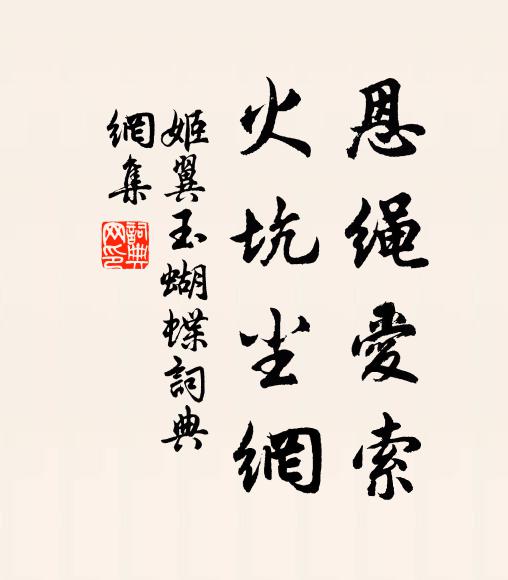 恩绳愛索
火坑尘網
姬翼玉蝴蝶詞典
網集
詞典
网印